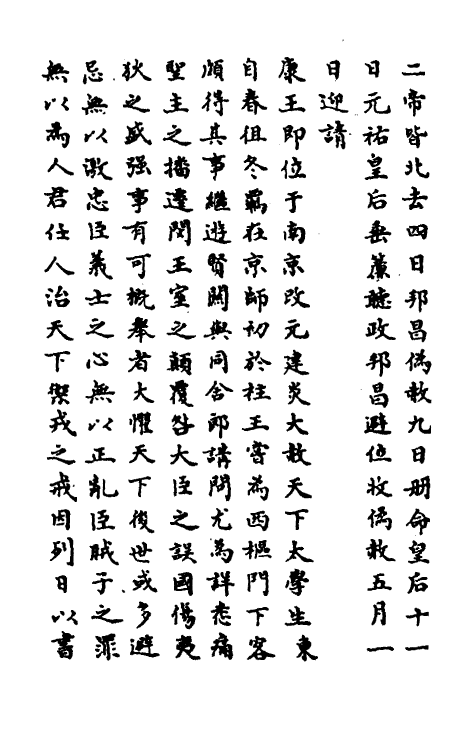 二帝皆北去四日邦昌偽赦九日册命皇后十一
日元祐皇后垂簾聽政邦昌避位收偽赦五月一
日迎請
康王即位于南京改元建炎大赦天下太學生東
自春徂冬羈在京師初於柱王㝛為西樞門下客
頗得其事繼遊賢關與同舍郎講問尤為詳悉痛
聖主之播遷閔王室之顛覆咎大臣之誤國傷夷
狄之盛强事有可概舉者大懼天下後世或多避
忌無以激忠臣義士之心無以正亂臣賊子之罪
無以為人君任人治天下禦戎之戒因列日以書